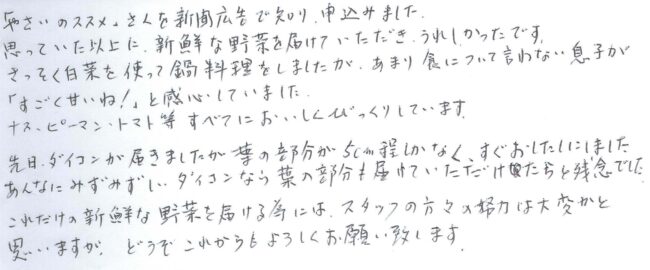 「やさいのススメ」さんを新聞広告で知り、申込みました。
思っていた以上に、新鮮な野菜を届けていただき、うれしかったです。
さっそく白菜を使って鍋料理をしましたが、あまり食について言わない息子が
「すごく甘いね!」と感心していました。
ナス、ピーマン、トマト等すべてにおいしくびっくりしています。
先日、ダイコンが届きましたが葉の部分が5cm程しかなく、すぐおしたしにしました
あんなにみずみずしいダイコンなら葉の部分も届けていただけたらと残念でした
これだけの新鮮な野菜を届ける為には、スタッフの方々の努力は大変かと
思いますが、どうぞこれからもよろしくお願い致します。